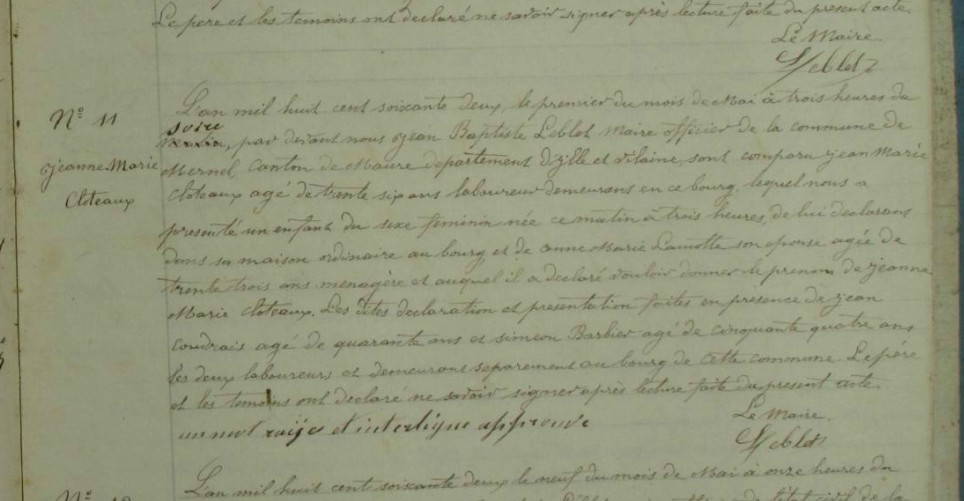 Le pere et les temoins ont declaré ne savoir signer après lecture faite du present acte.
Le Maire
Leblot
Nº 11
Jeanne Marie
Cloteaux
L'an mil huit cent soixante deux, le premier du mois de Mai à trois heures du
soire
matin, par devant nous Jean Baptiste Leblot Maire officier de la commune de
Mernel, Canton de Maure departement d'ylle et vilaine, sont comparu jean Marie
Cloteaux agé de trente six ans laboureur demeurans en ce bourg, lequel nous a
presenté un enfant du sexe feminin née ce matin à trois heures, de lui declarans
dans sa maison ordinaire au bourg et de anne Marie Lamotte son epouse agée de
trente trois ans menagère et auquel il a declaré vouloir donner le prenom de jeanne
Marie Cloteaux. Les dites declaration et presentation faites en présence de jean
coudrais agé de quarante ans et simeon Barbier agé de cinquante quatre ans
les deux laboureurs et demeurans separement au bourg de cette commune. Le père
et les temoins ont déclaré ne savoir signer après lecture faite du present acte.
un mot raije et interligne approuvé
Le Maire.
Leblot
L'an mil huit cent soixante deux le neuf du mois de Mai à onze heures du
Nº